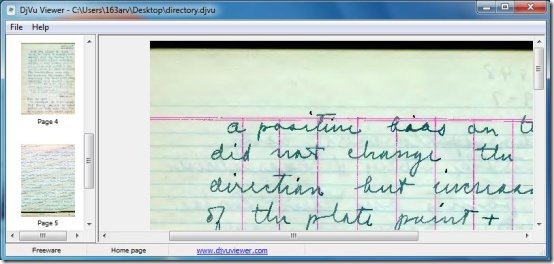 DjVu Viewer - C:\Users\163arv\Desktop\directory.djvu
File Help
Page 4
Page 5
a positive bias on
did not change the
direction but
of the plate point +
Freeware Home page www.djvuviewer.com